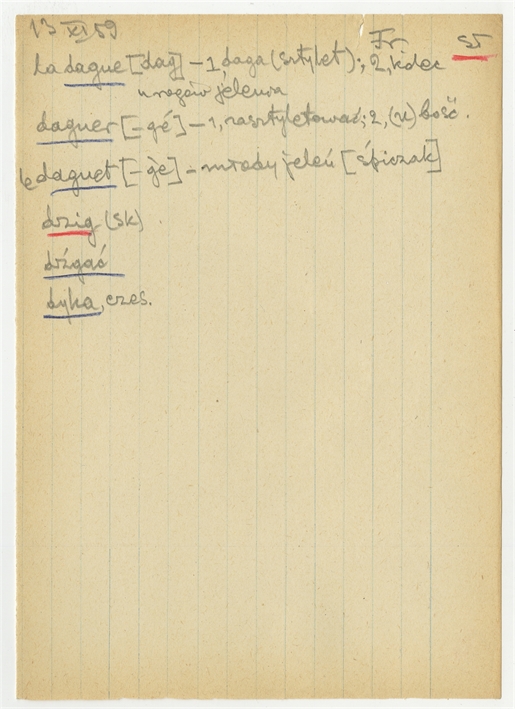 13 XI 59
Fr. st
La dague [dag] – 1, daga (sztylet); 2, kolec
u rogów jelenia
daguer [-gé] – 1, zasztyletować; 2, (u) bość.
le daguet [-gè] – młody jeleń [śpiczak]
dzig (sk)
dźgać
dyka, czes.